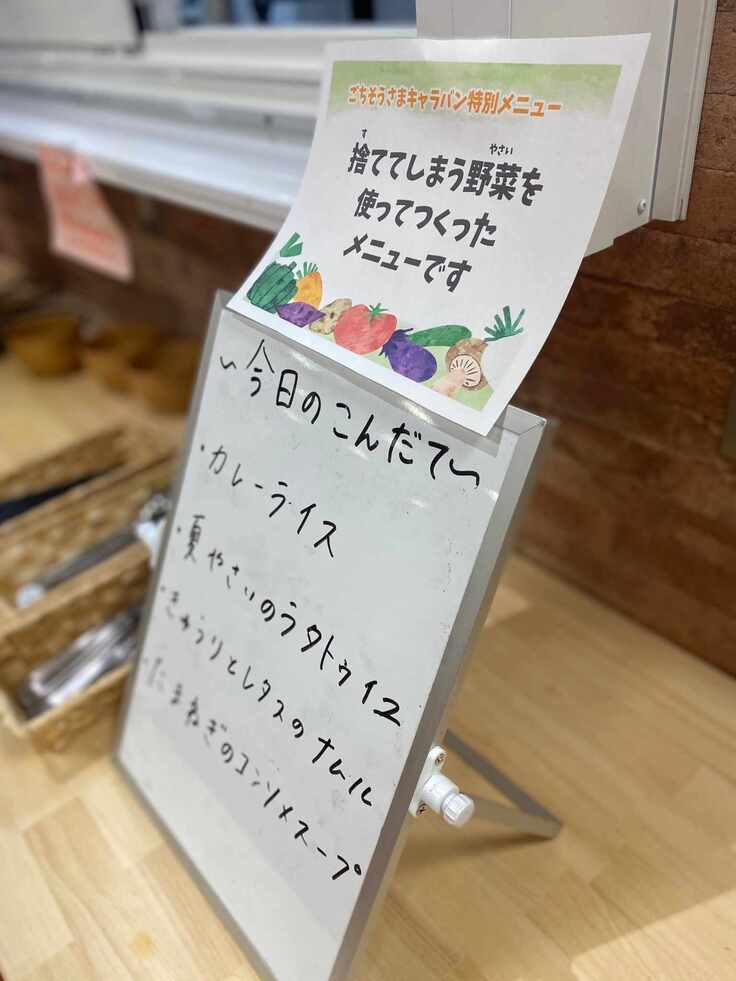 ごちそうさまキャラバン特別メニュー
捨ててしまう野菜を
使ってつくった
メニューです
〜今日のこんだて〜
・カレーライス
・夏やさいのラタトゥイユ
・きゅうりとレタスのナムル
・たまねぎのコンソメスープ